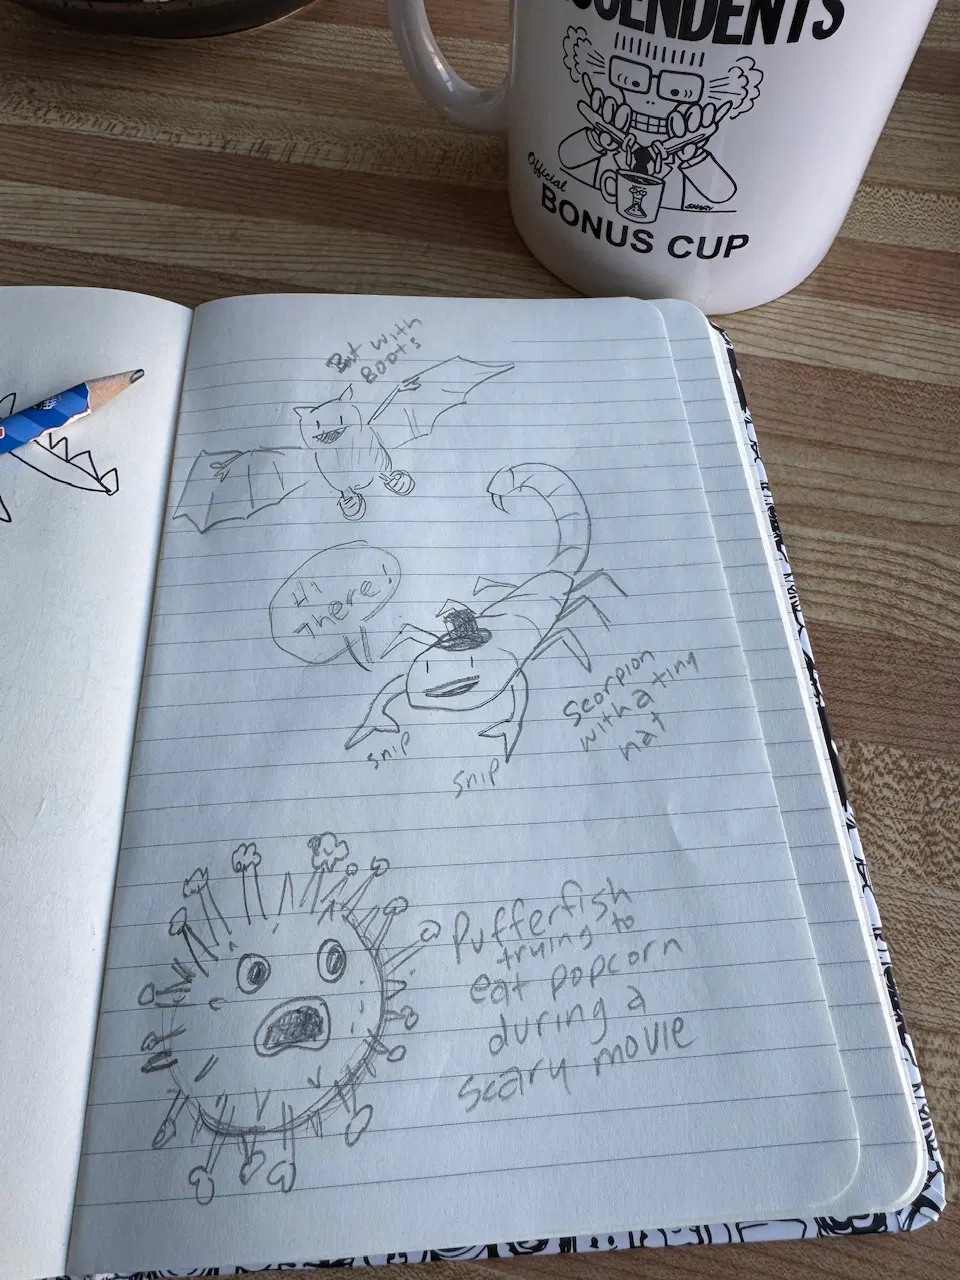 DESCENDENTS
Official
BONUS CUP
Bat with
Boots
Hi
There!
Scorpion
with a tiny
hat
snip
snip
Pufferfish
trying to
eat popcorn
during a
scary movie